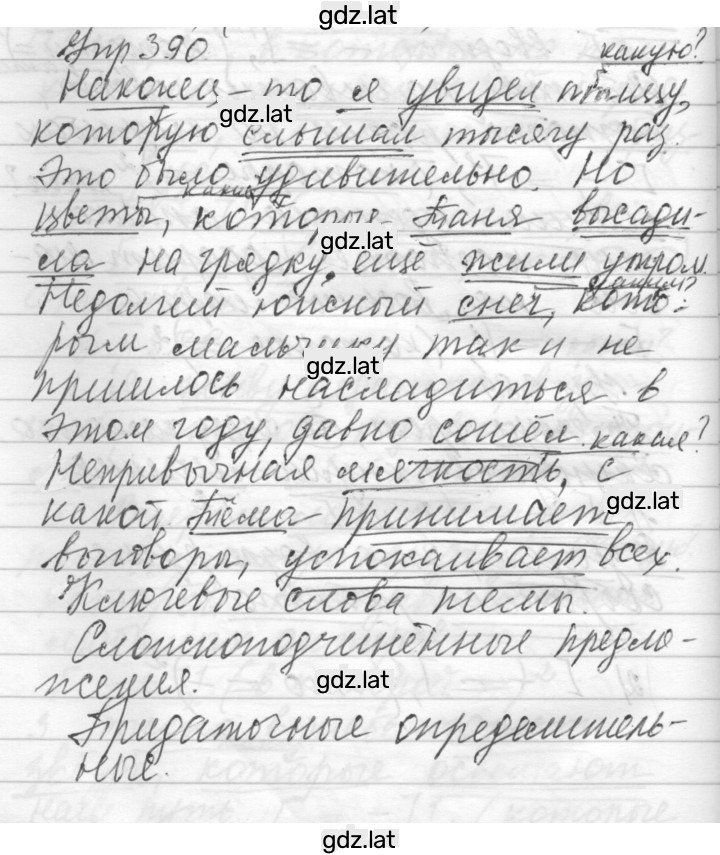 gdz.lat
Упр 390. какую?
Наконец-то я увидел птицу,
gdz.lat
которую слышал тысячу раз.
Это было удивительно. Но
какие
цветы, которые Таня высади-
gdz.lat
ла на грядку, ещё жили утром.
каким?
Недолгий южный снег, кото-
рым мальчику так и не
gdz.lat
пришлось насладиться в
этом году, давно сошёл. какая?
Непривычная мягкость, с
gdz.lat
какой Тёма принимает
выговоры, успокаивает всех.
Ключевые слова темы.
Сложноподчинённые предло-
жения.
gdz.lat
Придаточные определитель-
ные.
gdz.lat